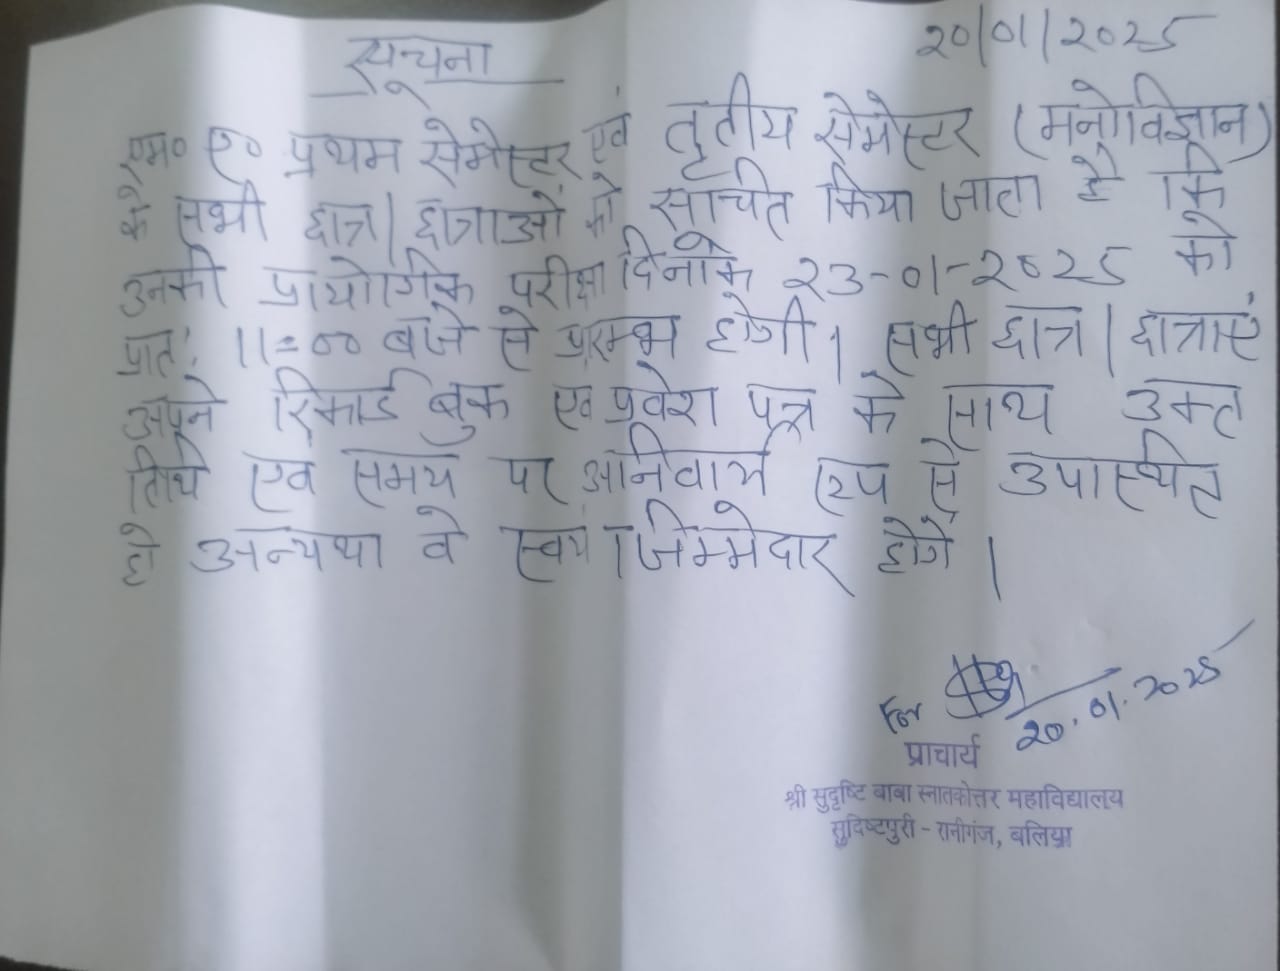 सूचना
20/01/2025
एम० ए० प्रथम सेमेस्टर एवं तृतीय सेमेस्टर (मनोविज्ञान)
के सभी छात्र/छात्राओं को सूचित किया जाता है कि
उनकी प्रायोगिक परीक्षा दिनांक 23-01-2025 को
प्रातः 11=00 बजे से प्रारम्भ होगी। सभी छात्र/छात्राएं
अपने रिकार्ड बुक एवं प्रवेश पत्र के साथ उक्त
तिथि एवं समय पर अनिवार्य रूप से उपस्थित
हो अन्यथा वे स्वयं जिम्मेदार होगे।
20.01.2025
प्राचार्य
श्री सुदृष्टि बाबा स्नातकोत्तर महाविद्यालय
सुदिष्टपुरी - रानीगंज, बलिया